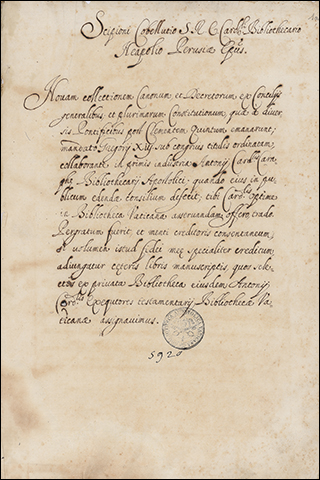 Scipioni Cobellutio S.R.E. Card.li Bibliothecario
Neapolio Perusiæ Epũs.
Novam collectionem Canonum, et Decretorum ex Concilijs
generalibus, et plurimarum Constitutionum, quæ à diver-
sis Pontificibus post Clementem Quintum emanarunt,
mandato Gregorij XIII sub congruis titulis ordinatam,
collaborante in primis industria Antonij Card.lis Cara-
phę Bibliothecarij Apostolici, quando eius in pu-
blicum edendæ consilium deficit, tibi Card.li optime
in Bibliotheca Vaticana asservandam offero, trado.
Pergratum fuerit, et menti creditoris consentaneum,
si volumen istud fidei meę specialiter creditum,
adiungatur ceteris libris manuscriptis quos sele-
ctos ex privata Bibliotheca eiusdem Antonij
Card.lis Exequutores testamentarij Bibliothecæ Va-
ticanæ assignavimus.
5920